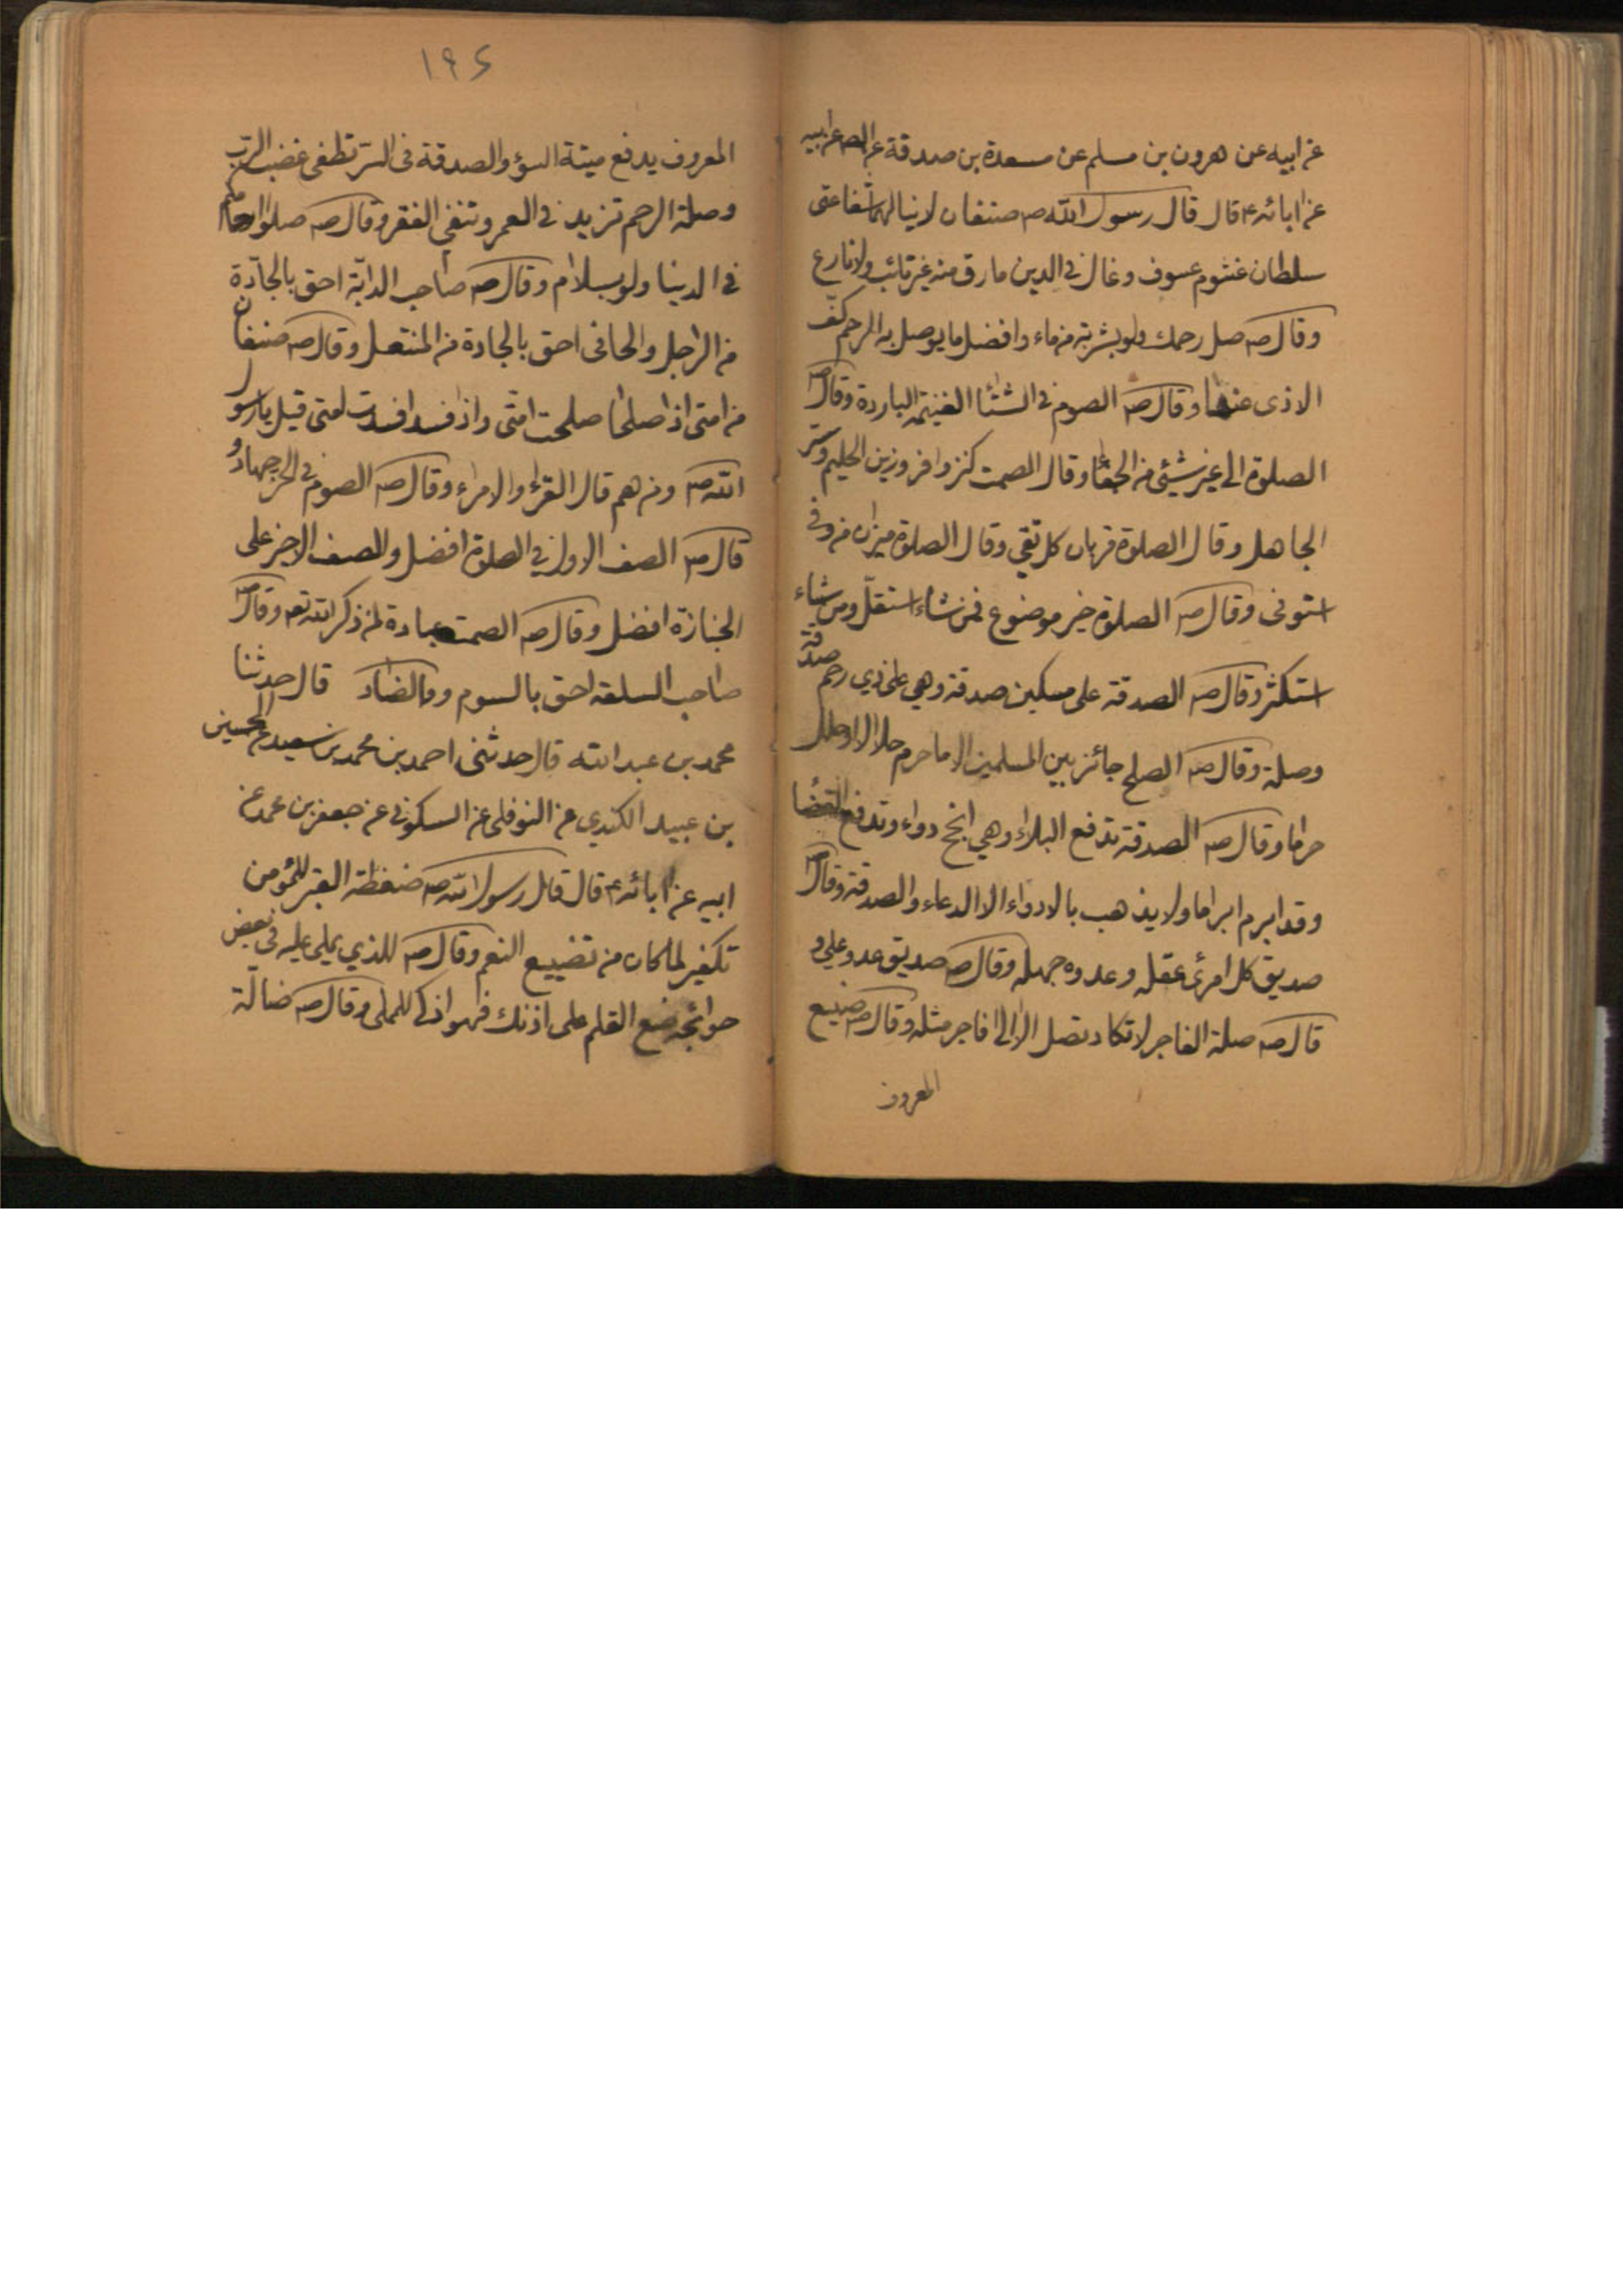 عن ابيه عن هرون بن مسلم عن مسعدة بن صدقة عن الصم عن ابيه
عن ابائه ع قال قال رسول الله صم صنفان لا ينالهما شفاعتى
سلطان غشوم عسوف وغال في الدين مارق منه غير تائب ولا نازع
وقال صم صل رحمك ولو بشربة من ماء وافضل ما يوصل به الرحم كفّ
الاذى عنها وقال صم الصوم في الشتا الغنيمة الباردة وقال صم
الصلوة الى غير شيئ من الجفا وقال الصمت كنز وافر وزين الحليم وستر
الجاهل وقال الصلوة قربان كل تقي وقال الصلوة ميزان من وفى
استوفى وقال صم الصلوة خير موضوع فمن شاء استقلّ ومن شاء
استكثر وقال صم الصدقة على مسكين صدقة وهي على ذي رحم صدقة
وصلة وقال صم الصلح جائز بين المسلمين الا ما حرم حلالا او حلل
حراما وقال صم الصدقة تدفع البلاء وهي انجح دواء وتدفع القضا
وقد ابرم ابراما ولا يذهب بالادواء الا الدعاء والصدقة وقال صم
صديق كل امرئ عقله وعدوه جهله وقال صم صديق عدو علي و
قال صم صلة الفاجر لا تكاد تصل الا الى فاجر مثله وقال صم صنيع
المعروف
١٩٤
المعروف يدفع ميتة السؤ والصدقة فى السرّ تطفى غضب الرب
وصلة الرحم تزيد في العمر وتنفي الفقر وقال صم صلوا ارحامكم
في الدنيا ولو بسلام وقال صم صاحب الدابّة احق بالجادّة
من الراجل والحافى احق بالجادة من المنتعل وقال صم صنفان
من امتى اذا صلحا صلحت امتى واذا فسدا فسدت امتى قيل يا رسول
الله صم ومن هم قال القراء والامراء وقال صم الصوم في الحر جهاد و
قال صم الصف الاول في الصلوة افضل والصف الاخير على
الجنازة افضل وقال صم الصمت عبادة لمن ذكر الله تعه وقال صم
صاحب السلعة احق بالسوم وما الضاد قال حدثنا
محمد بن عبد الله قال حدثنى احمد بن محمد بن سعيد عن الحسين
بن عبيد الكندي عن النوفلى عن السكوني عن جعفر بن محمد عن
ابيه عن ابائه ع قال قال رسول الله صم ضغطة القبر للمؤمن
تكفير لما كان من تضييع النعم وقال صم للذي يملى عليه فى بعض
حوائجه ضع القلم على اذنك فهو اذكى للمملى وقال صم ضالّة